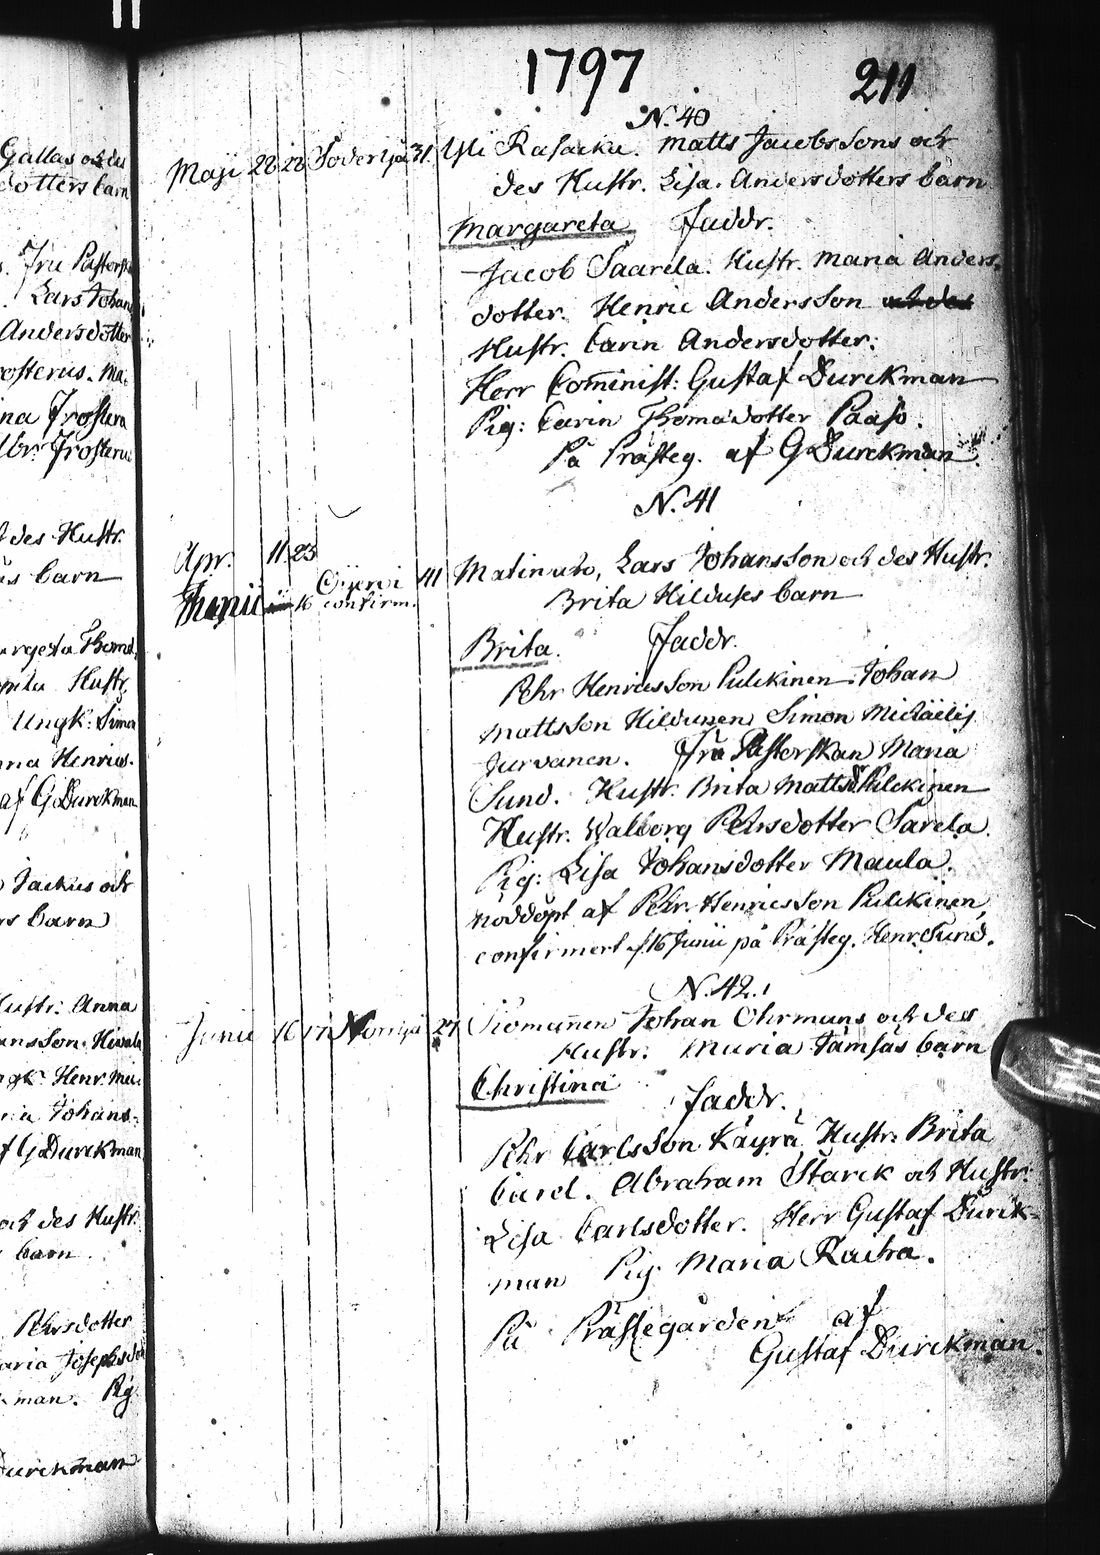 1797
211
Gallas och des
dotters barn
Fru Pastorsk
Lars Johans
Andersdotter
Frosterus. Ma
Frostera
Frosterus
des Hustr.
barn
Thoms
Hustr.
Ungk: Simon
Henrics
af G Durckman
och
barn
Hustr: Anna
Henr. Ma
Johans-
af G Durckman
och des Hustr.
barn.
Pehrsdotter
Maria Josephsdr
man. Pig
Durckman
N. 40
Maji 22 23 Söderbya 31. Yli Rasacku. Matts Jacobssons och
des Hustr. Lisa. Andersdotters barn
Margareta Faddr.
Jacob Saarela. Hustr. Maria Anders-
dotter. Henric Andersson och des
Hustr. Carin Andersdotter.
Herr Comminist: Gustaf Durckman
Pig: Carin Thomædotter Paaso.
På Prästeg. af G Durckman.
N. 41
Apr. 11 23
Junii 16 confirm. 111 Matinuto, Lars Johansson och des Hustr.
Brita Hilduses barn
Brita. Faddr.
Pehr Henricsson Pulckinen Johan
Mattsson Hildunen Simon Michaelis
Jurvanen. Fru Pastorskan Maria
Sund. Hustr. Brita Mattsdr Pulckinen
Hustr. Walborg Pehrsdotter Sarela.
Pig: Lisa Johansdotter Maula.
Nöddöpt af Pehr. Henricsson Pulckinen,
confirmert d. 16 Junii på Prästeg. Henr. Sund.
N. 42.
Junii 16 17 Norrbya 27 Siomunen Johan Ohrmans och des
Hustr. Maria Tämsäs barn
Christina
Faddr.
Pehr Carlsson Käyrä Hustr: Brita
Carel. Abraham Starck och Hustr:
Lisa Carlsdotter. Herr Gustaf Durck-
man Pig. Maria Raiha.
På Prästegården af
Gustaf Durckman.